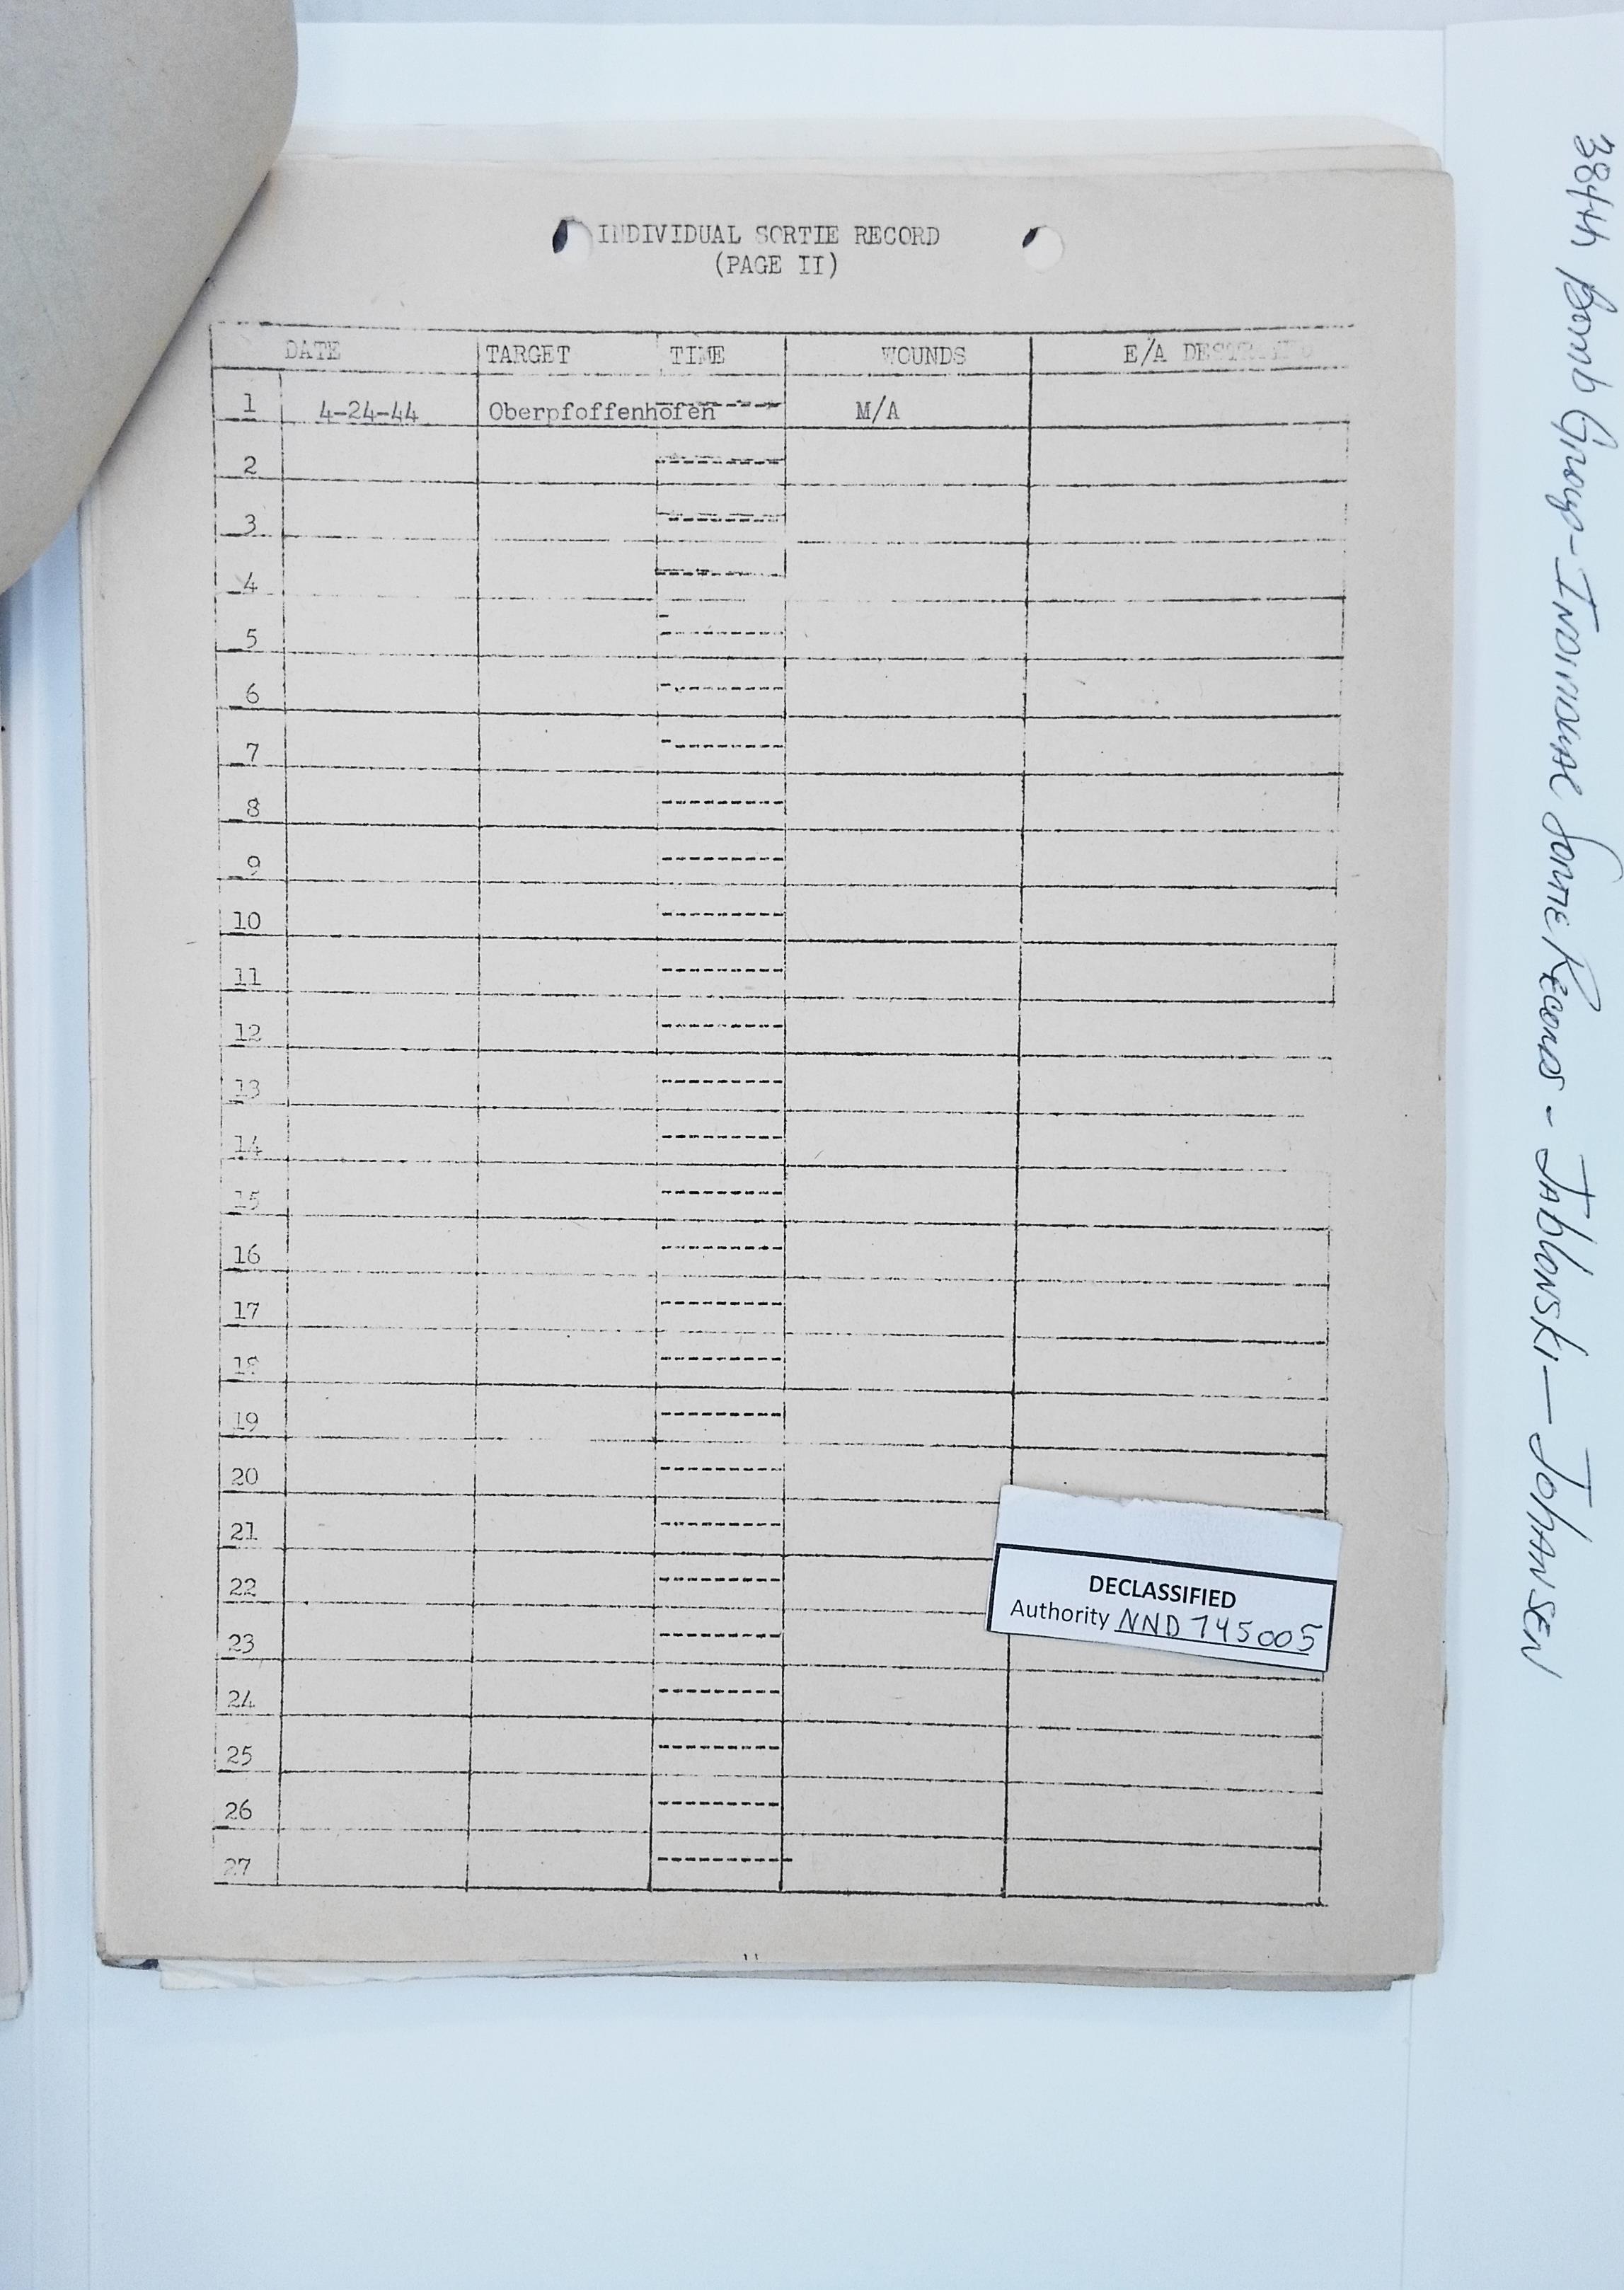 INDIVIDUAL SORTIE RECORD
(PAGE II)
DATE TARGET TIME WOUNDS E/A
1 4-24-44 Oberpfoffenhofen M/A
2
3
4
5
6
7
8
9
10
11
12
13
14
15
16
17
18
19
20
21
22
23
24
25
26
27
DECLASSIFIED
Authority NND 745005
384th Bomb Group - Individual Sortie Records - Jablonski — Johansen